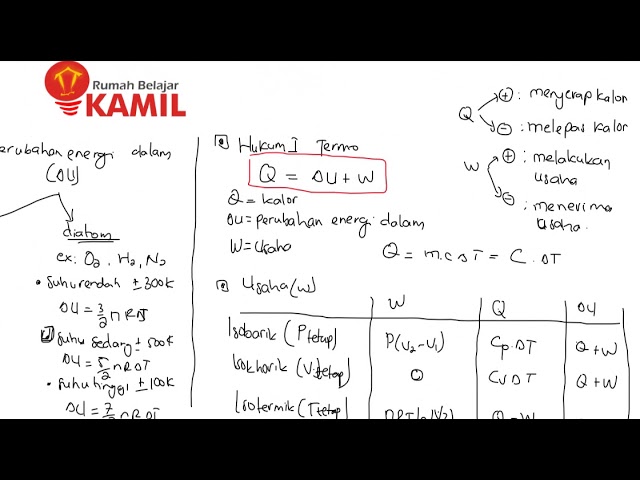 Rumah Belajar
KAMIL
erubahan energi dalam
(ΔU)
diatom
ex: O2, H2, N2
• suhu rendah ± 300K
ΔU = 3/2 n R ΔT
suhu sedang ± 500K
ΔU = 5/2 n R ΔT
• suhu tinggi ± 100K
ΔU = 7/2 n R ΔT
Hukum I Termo
Q = ΔU + W
Q = kalor
ΔU = perubahan energi dalam
W = Usaha
Q = m.c ΔT = C . ΔT
Q
+ : menyerap kalor
- : melepas kalor
W
+ : melakukan
usaha
- : menerima
usaha
Usaha (W)
W Q ΔU
Isobarik (P tetap) P(V2-V1) Cp.ΔT Q+W
Isokhorik (V. tetap) 0 CV ΔT Q+W
Isotermik (T tetap)